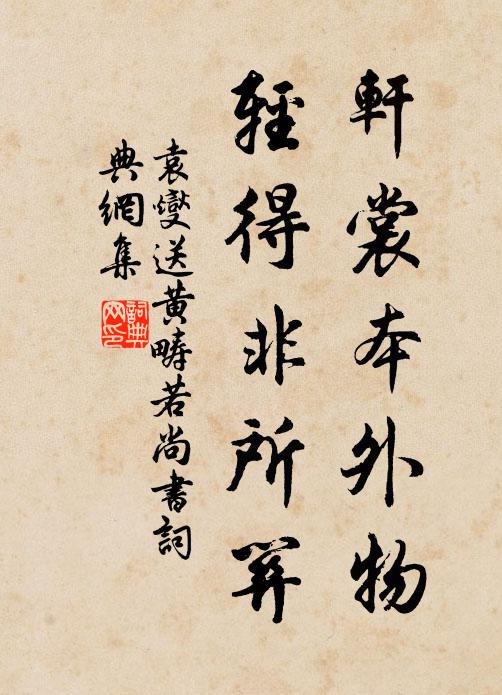 軒裳本外物
輕得非所算
袁燮送黃疇若尚書詞
典網集
詞典
网印